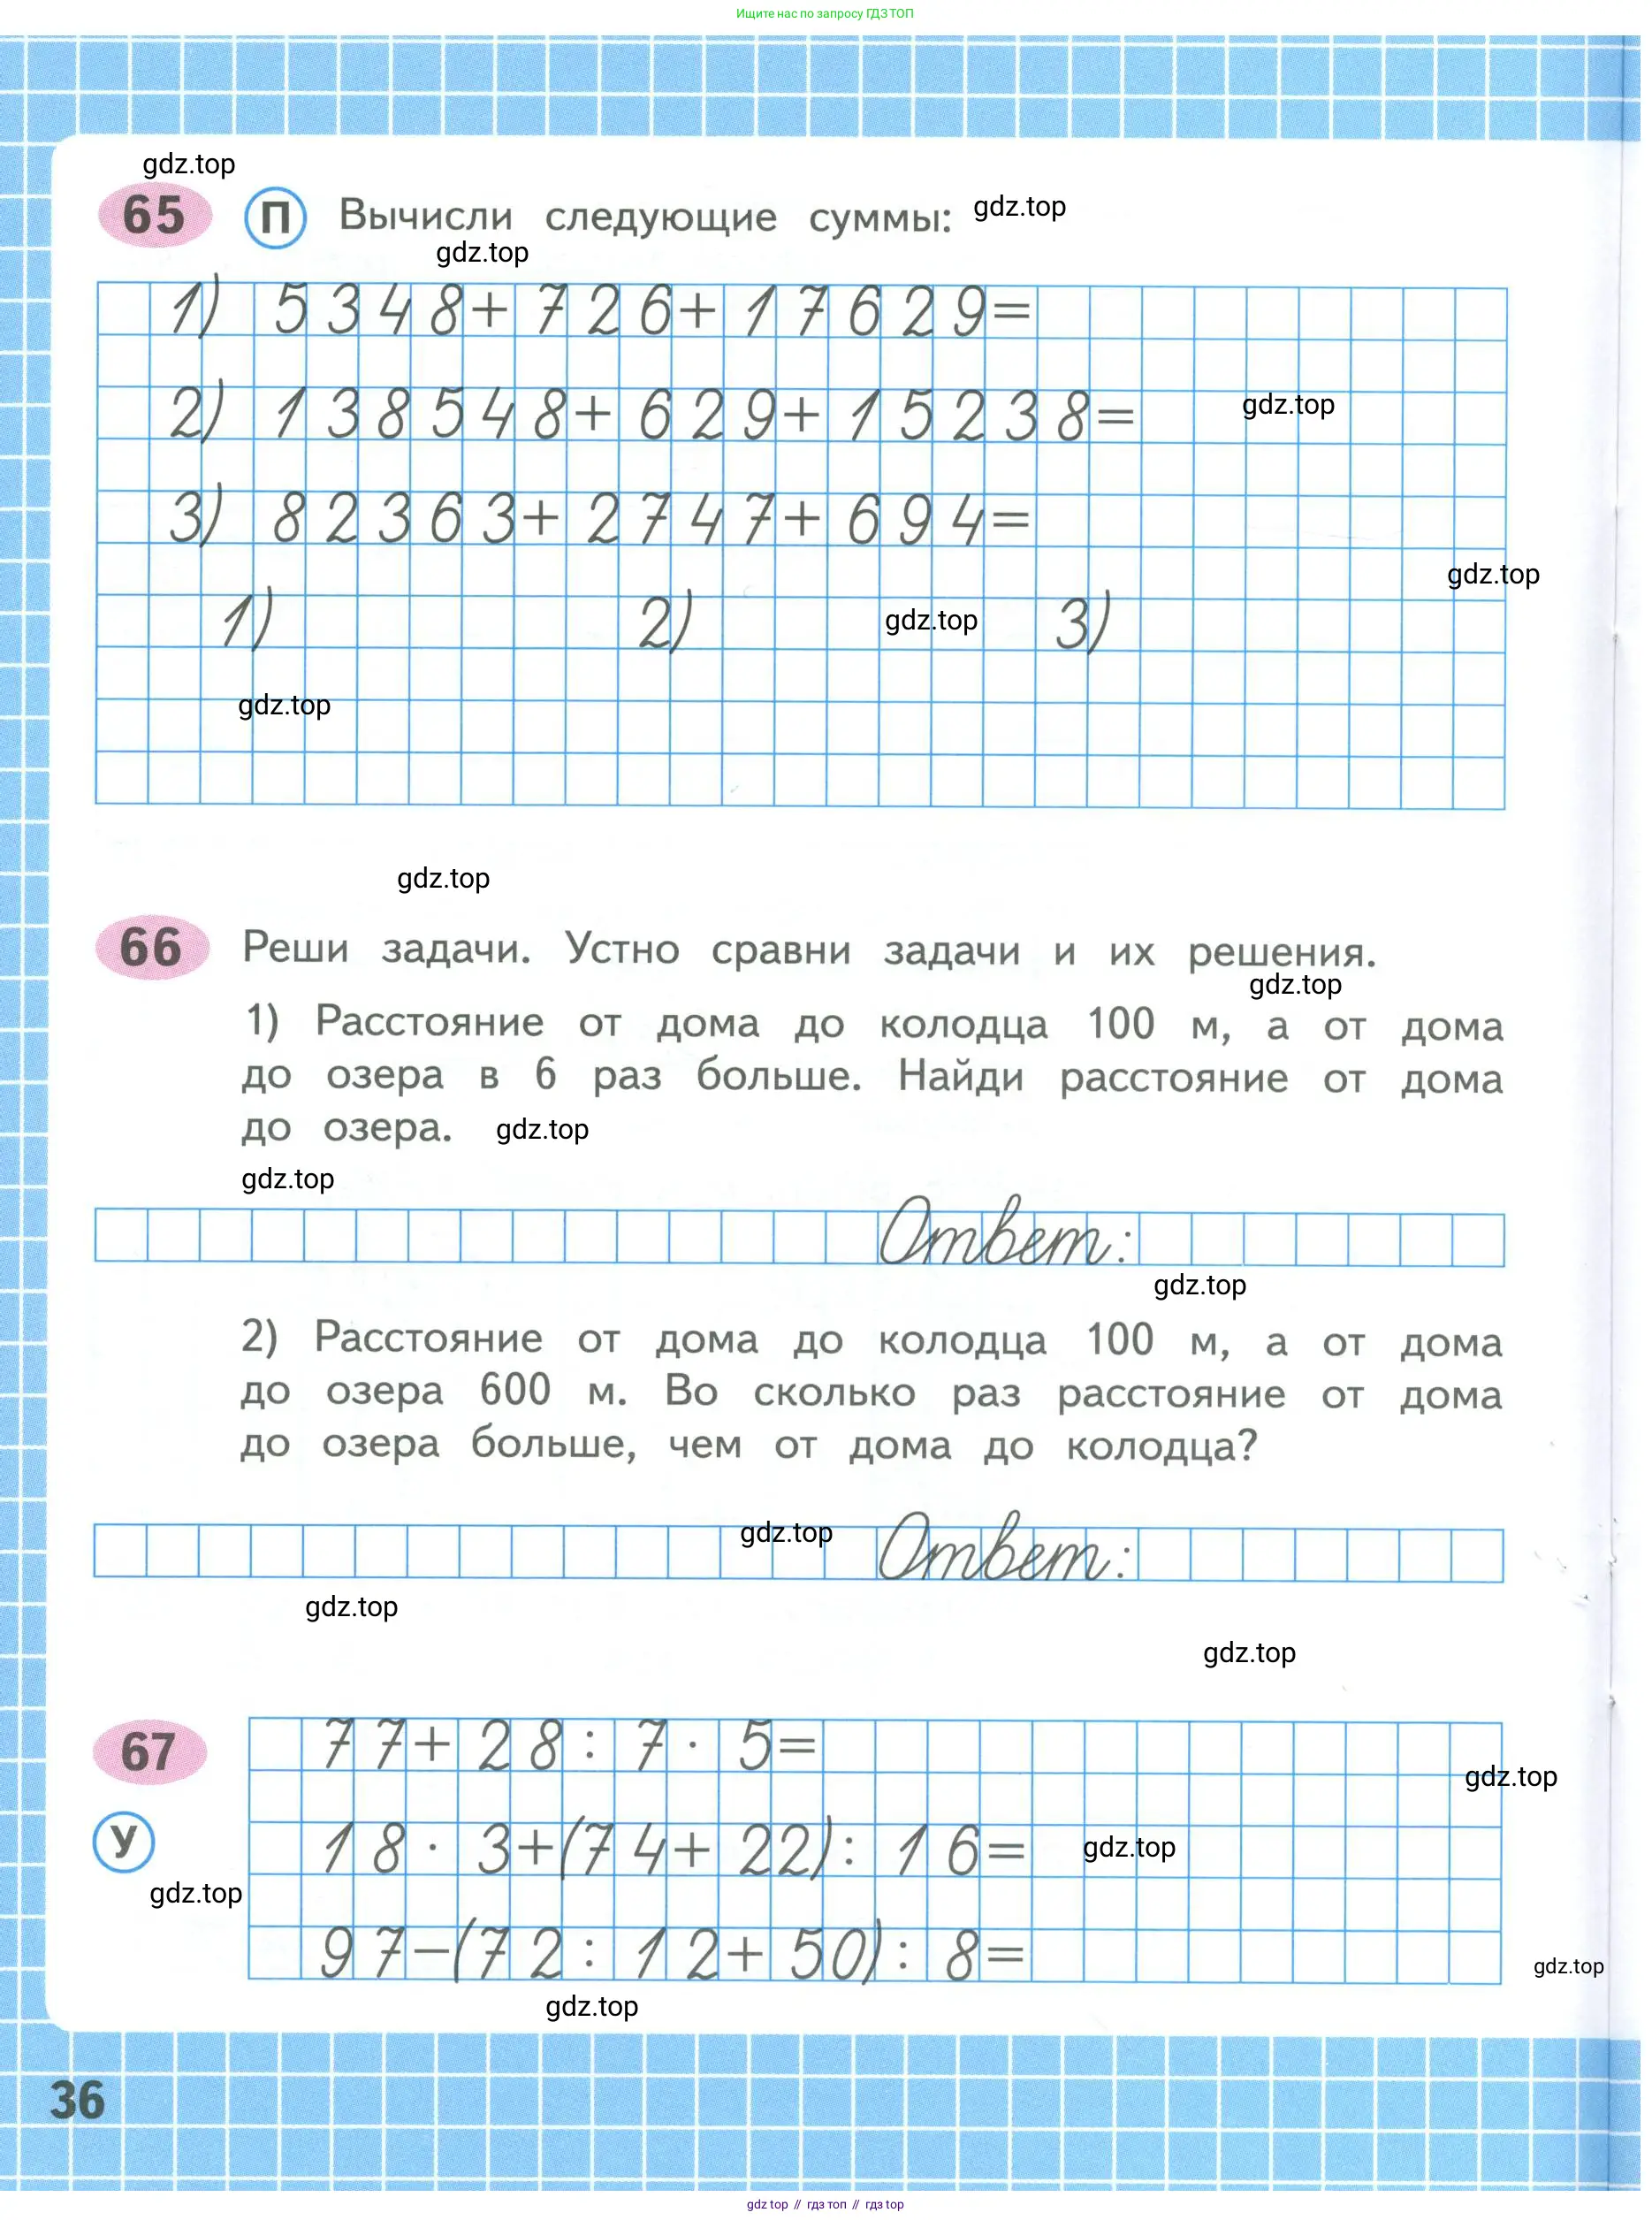 Ищите нас по запросу ГДЗ ТОП
gdz.top
65 П Вычисли следующие суммы: gdz.top
gdz.top
1) 5348+726+17629=
2) 138548+629+15238= gdz.top
3) 82363+2747+694=
gdz.top
1) 2) gdz.top 3)
gdz.top
gdz.top
66 Реши задачи. Устно сравни задачи и их решения.
gdz.top
1) Расстояние от дома до колодца 100 м, а от дома
до озера в 6 раз больше. Найди расстояние от дома
до озера. gdz.top
gdz.top
Ответ:
gdz.top
2) Расстояние от дома до колодца 100 м, а от дома
до озера 600 м. Во сколько раз расстояние от дома
до озера больше, чем от дома до колодца?
gdz.top Ответ:
gdz.top
gdz.top
67 77+28:7·5=
gdz.top
У 18·3+(74+22):16= gdz.top
gdz.top
97-(72:12+50):8=
gdz.top
gdz.top
36
gdz top // гдз топ // гдз top